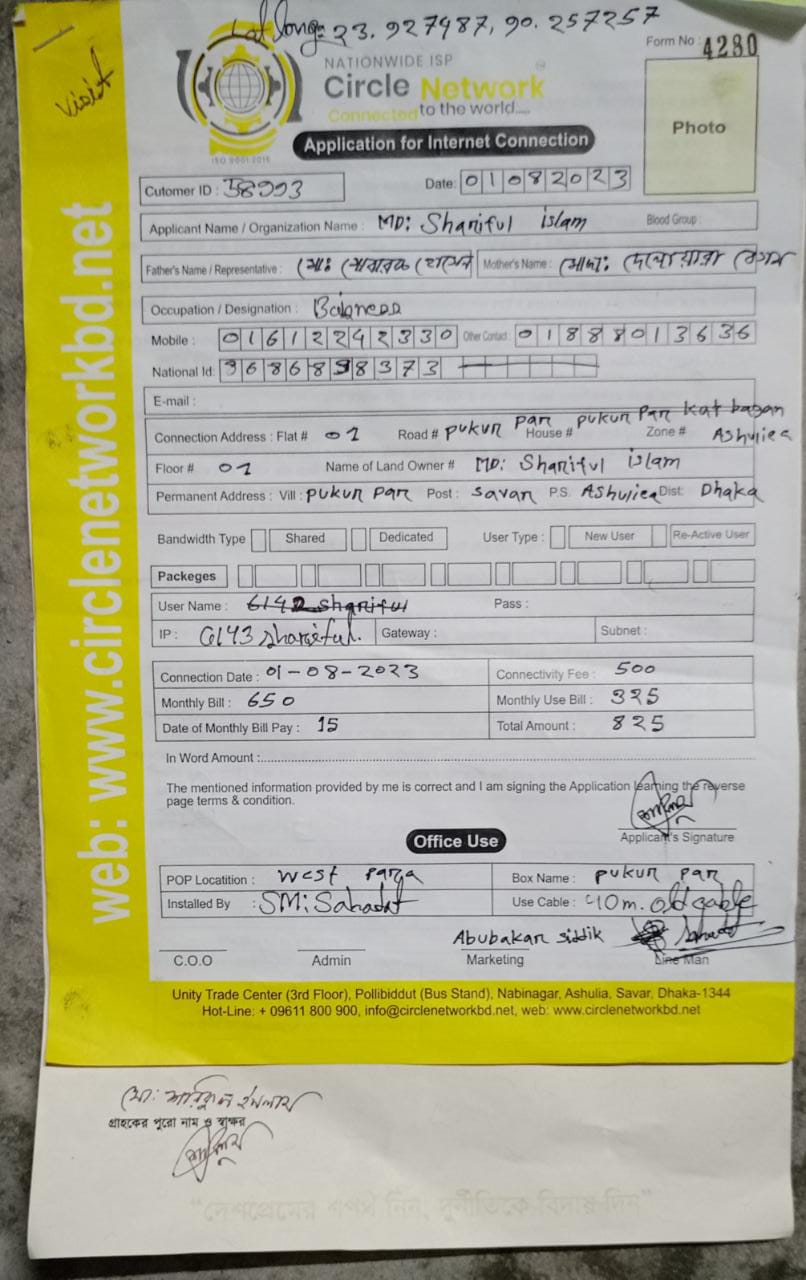 Lat long: 23.927487, 90.257257
Visit
Form No : 4280
NATIONWIDE ISP
Circle Network
Connected to the world.....
ISO 9001:2015
Application for Internet Connection
Photo
Cutomer ID :
Date: 01082023
Applicant Name / Organization Name : MD: Shariful islam Blood Group :
Father's Name / Representative : মোঃ মোবারক হোসেন Mother's Name : মোসাঃ দেলোয়ারা বেগম
Occupation / Designation :
Mobile : 01612242330 Other Contact: 01888013636
National Id:
E-mail :
pukur par kat bagan
Connection Address : Flat # 01 Road # pukur par House # Zone # Ashuliea
Floor # 01 Name of Land Owner # MD: Shariful islam
Permanent Address : Vill : pukur par Post : savar P.S. Ashuliea Dist: Dhaka
Bandwidth Type Shared Dedicated User Type : New User Re-Active User
Packeges
User Name : 6142 shariful Pass :
IP : 6143 shariful. Gateway : Subnet :
Connection Date : 01-08-2023 Connectivity Fee : 500
Monthly Bill : 650 Monthly Use Bill : 325
Date of Monthly Bill Pay : 15 Total Amount : 825
In Word Amount :
The mentioned information provided by me is correct and I am signing the Application learning the reverse
page terms & condition.
Applicant's Signature
Office Use
POP Locatition : West Parga Box Name : pukur par
Installed By : SM: Sahadat Use Cable : 40m. old cable
Abubakar siddik Sahadat
C.O.O Admin Marketing Line Man
Unity Trade Center (3rd Floor), Pollibiddut (Bus Stand), Nabinagar, Ashulia, Savar, Dhaka-1344
Hot-Line: + 09611 800 900, info@circlenetworkbd.net, web: www.circlenetworkbd.net
web: www.circlenetworkbd.net
মো: শরিফুল ইসলাম
গ্রাহকের পুরো নাম ও স্বাক্ষর
"দেশপ্রেমের শপথ নিন, দুর্নীতিকে বিদায় দিন"